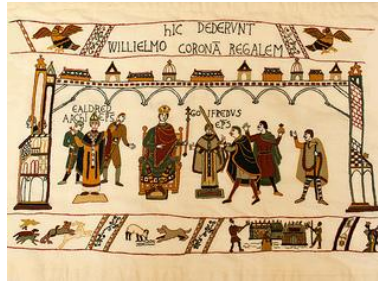 hIC DEDERVNT
WILLIELMO CORONA REGALEM
EALDRED
ARCHIEPS
GOIFREDVS
EPS